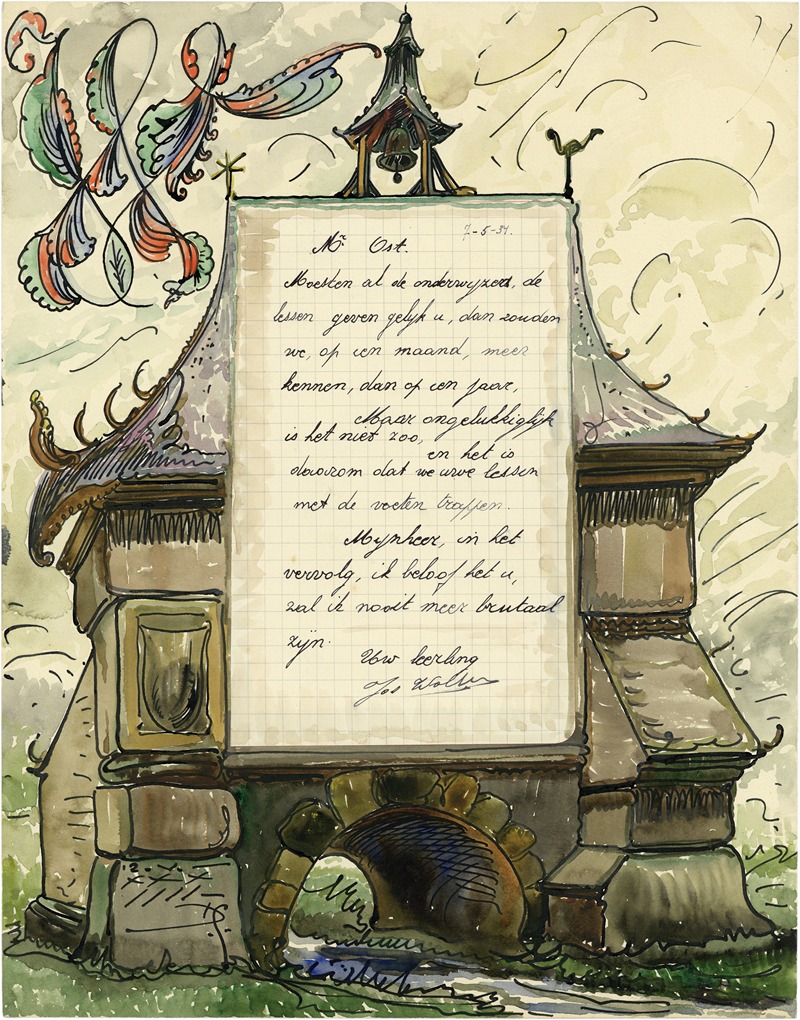 7-5-34.
Mr Ost.
Moesten al de onderwyzers, de
lessen geven gelyk u, dan zouden
we, op een maand, meer
kennen, dan op een jaar,
Maar ongelukkiglyk
is het niet zoo,
en het is
daarom dat we uwe lessen
met de voeten trappen.
Mynheer, in het
vervolg, ik beloof het u,
zal ik nooit meer brutaal
zyn.
Uw leerling
Jos